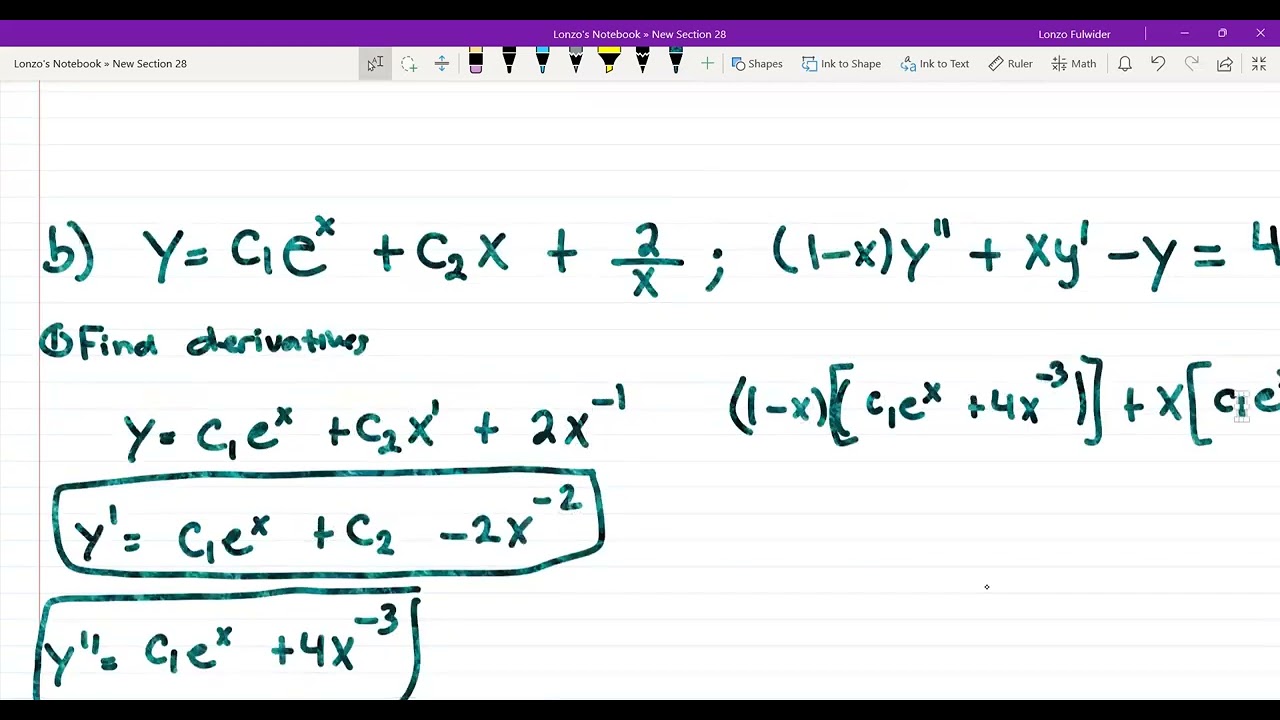 Lonzo's Notebook » New Section 28
Lonzo Fulwider
Lonzo's Notebook » New Section 28
Shapes
Ink to Shape
Ink to Text
Ruler
Math
b) y = c₁eˣ + c₂x + 2/x ; (1-x)y'' + xy' - y = 4
① Find derivatives
y = c₁eˣ + c₂x¹ + 2x⁻¹
(1-x)[(c₁eˣ + 4x⁻³)] + x[c₁e
y' = c₁eˣ + c₂ - 2x⁻²
y'' = c₁eˣ + 4x⁻³